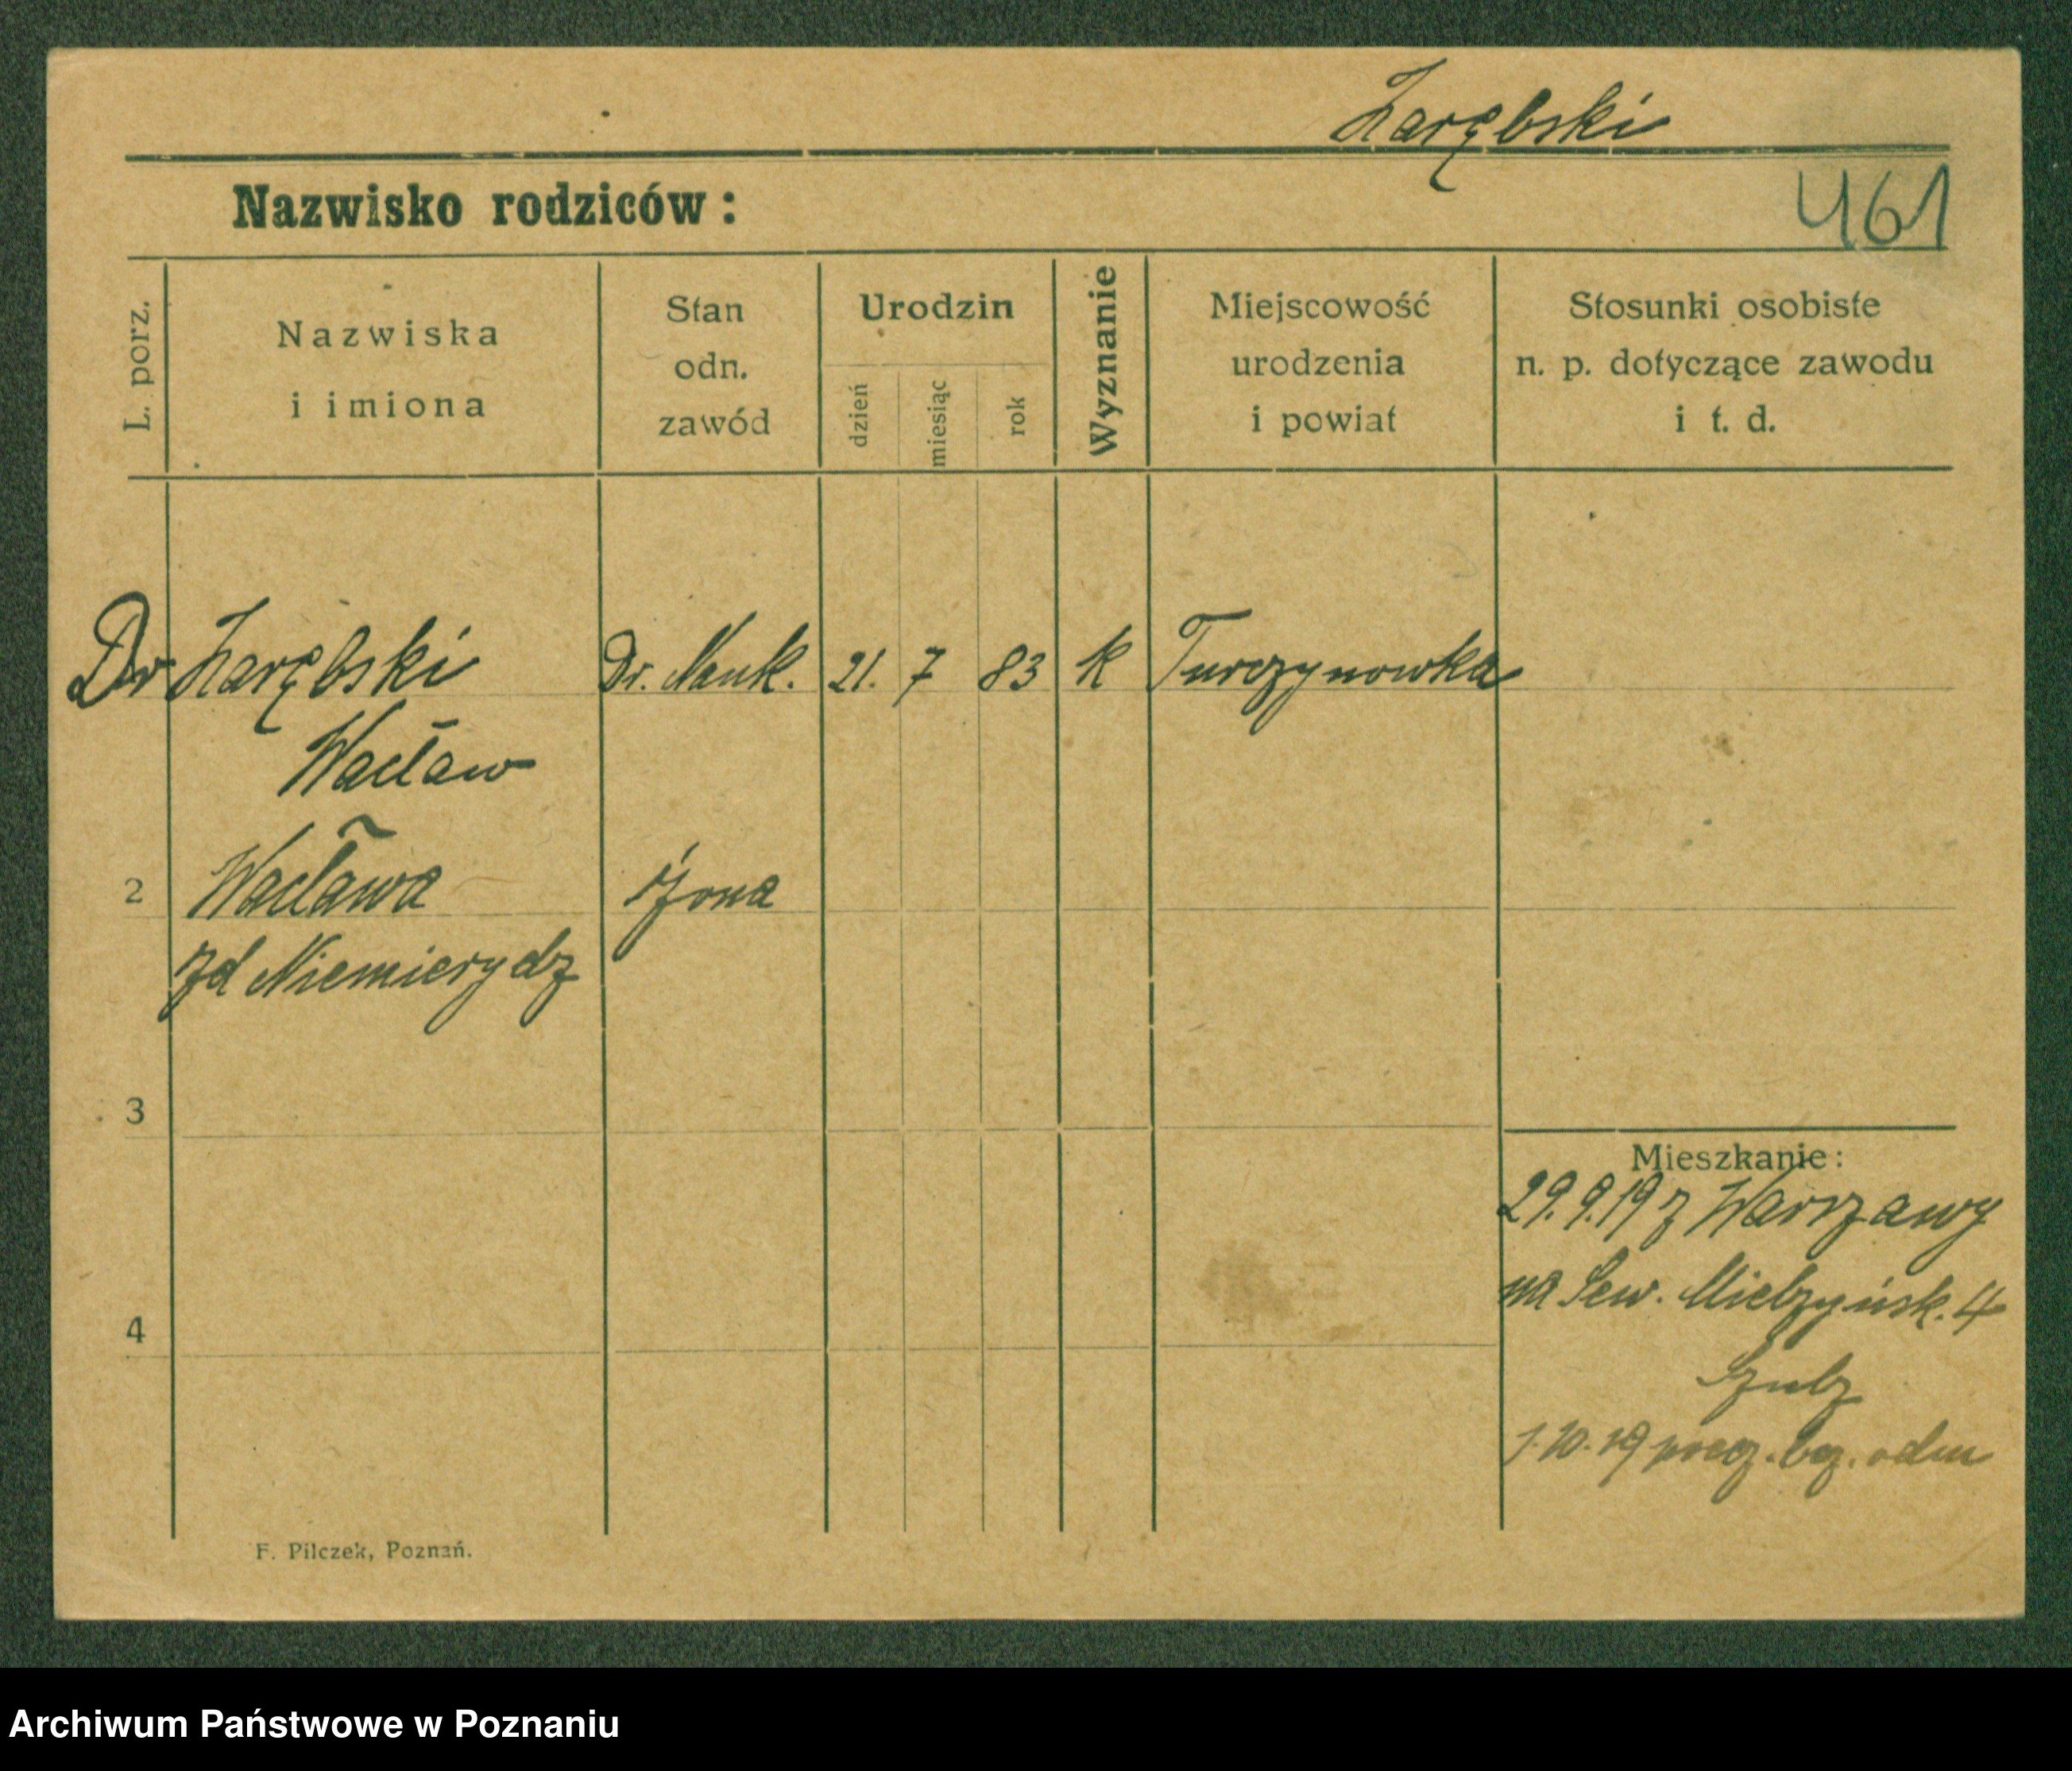 Zarębski
Nazwisko rodziców:
461
L. porz.
Nazwiska
i imiona
Stan
odn.
zawód
Urodzin
dzień
miesiąc
rok
Wyznanie
Miejscowość
urodzenia
i powiat
Stosunki osobiste
n. p. dotyczące zawodu
i t. d.
Dr Zarębski Dr. Nauk. 21. 7 83 k Turczynowka
Wacław
2 Wacława żona
zd Niemierydz
3
Mieszkanie:
29.9.19 z Warszawy
na Sew. Mielżyńsk. 4
4
Szulz
1.10.19
F. Pilczek, Poznań.
Archiwum Państwowe w Poznaniu